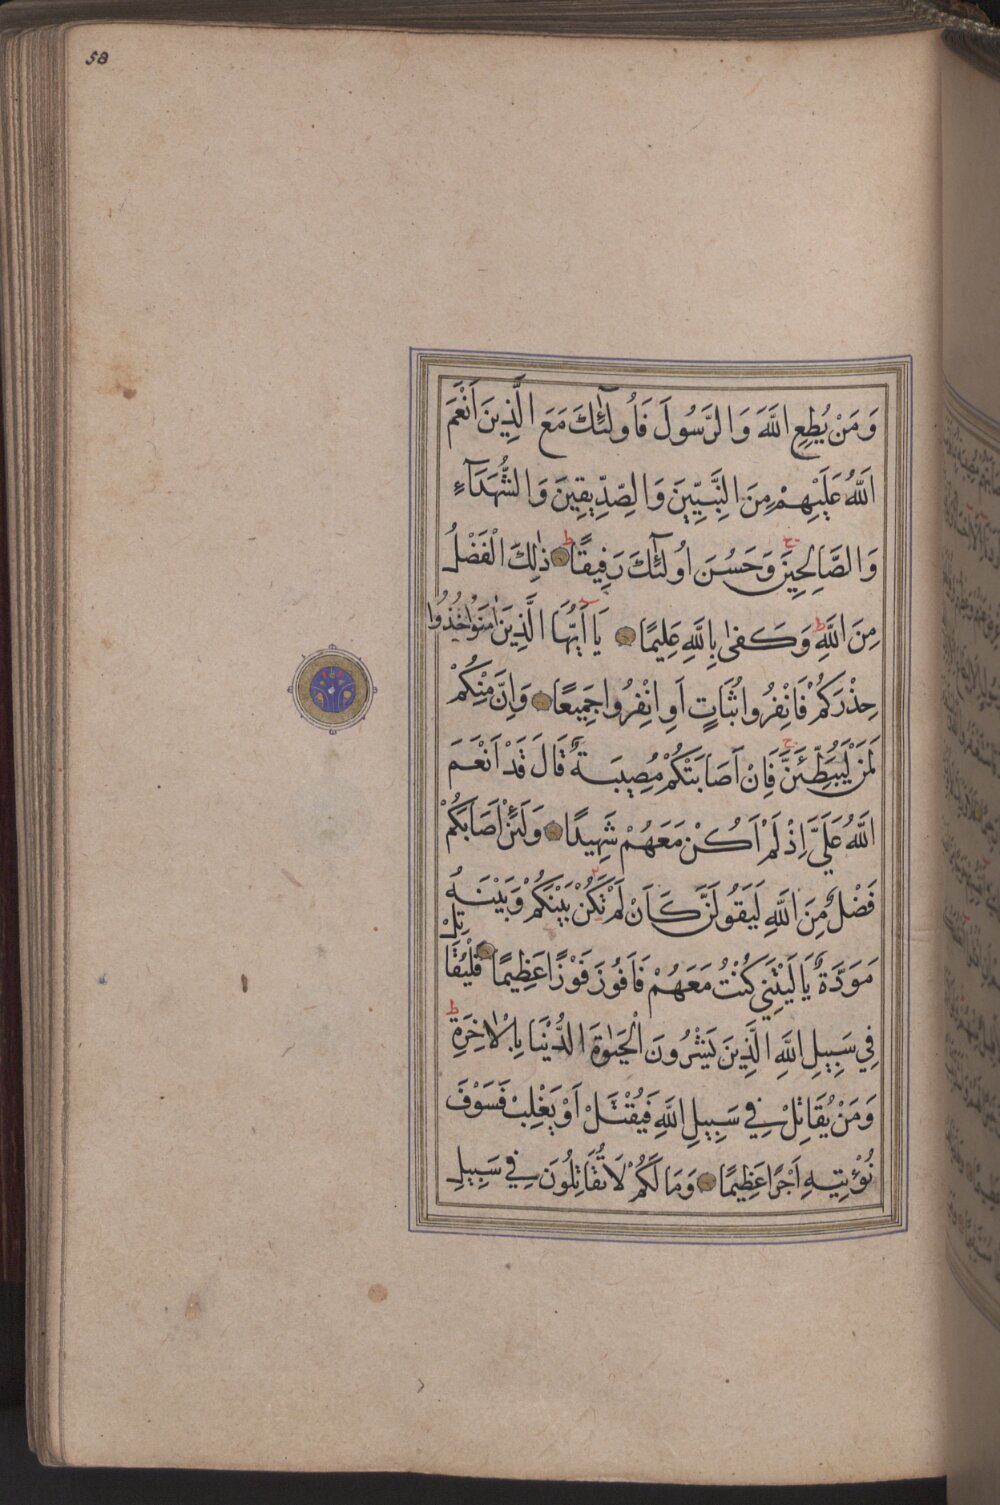 58
وَمَنْ يُطِعِ اللَّهَ وَالرَّسُولَ فَاُولٰٓئِكَ مَعَ الَّذِينَ اَنْعَمَ
اللَّهُ عَلَيْهِمْ مِنَ النَّبِيّينَ وَالصِّدِّيقِينَ وَالشُّهَدَآءِ
وَالصَّالِحِينَ وَحَسُنَ اُولٰٓئِكَ رَفِيقًا ذٰلِكَ الْفَضْلُ
مِنَ اللَّهِ وَكَفىٰ بِاللَّهِ عَلِيمًا يَآ اَيُّهَا الَّذِينَ اٰمَنُوا خُذُوا
حِذْرَكُمْ فَانْفِرُوا ثُبَاتٍ اَوِ انْفِرُوا جَمِيعًا وَاِنَّ مِنْكُمْ
لَمَنْ لَيُبَطِّئَنَّ فَاِنْ اَصَابَتْكُمْ مُصِيبَةٌ قَالَ قَدْ اَنْعَمَ
اللَّهُ عَلَيَّ اِذْ لَمْ اَكُنْ مَعَهُمْ شَهِيدًا وَلَئِنْ اَصَابَكُمْ
فَضْلٌ مِنَ اللَّهِ لَيَقُولَنَّ كَاَنْ لَمْ تَكُنْ بَيْنَكُمْ وَبَيْنَهُ
مَوَدَّةٌ يَا لَيْتَنِي كُنْتُ مَعَهُمْ فَاَفُوزَ فَوْزًا عَظِيمًا فَلْيُقَاتِلْ
فِي سَبِيلِ اللَّهِ الَّذِينَ يَشْرُونَ الْحَيٰوةَ الدُّنْيَا بِالْاٰخِرَةِ
وَمَنْ يُقَاتِلْ فِي سَبِيلِ اللَّهِ فَيُقْتَلْ اَوْ يَغْلِبْ فَسَوْفَ
نُؤْتِيهِ اَجْرًا عَظِيمًا وَمَا لَكُمْ لَا تُقَاتِلُونَ فِي سَبِيلِ